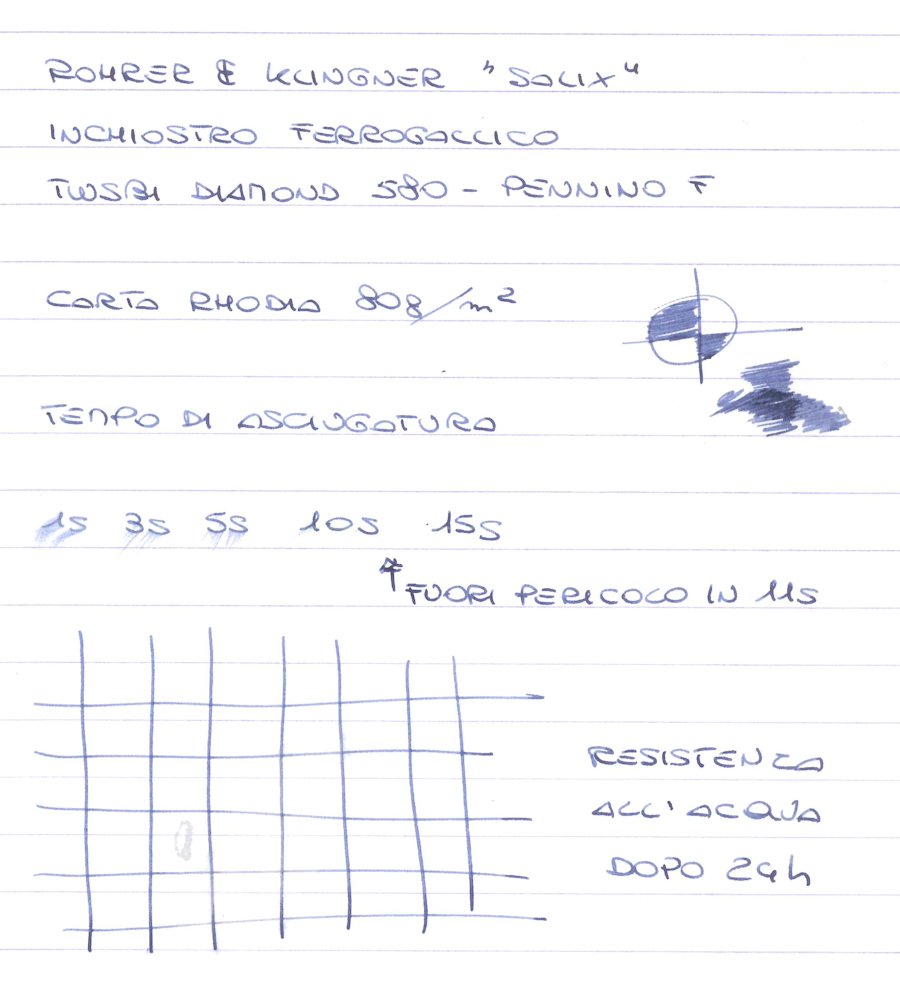 ROHRER & KLINGNER "SALIX"
INCHIOSTRO FERROGALLICO
TWSBI DIAMOND 580 - PENNINO F
CARTA RHODIA 80g/m²
TEMPO DI ASCIUGATURA
1s 3s 5s 10s 15s
↑ FUORI PERICOLO IN 11s
RESISTENZA
ALL'ACQUA
DOPO 24h